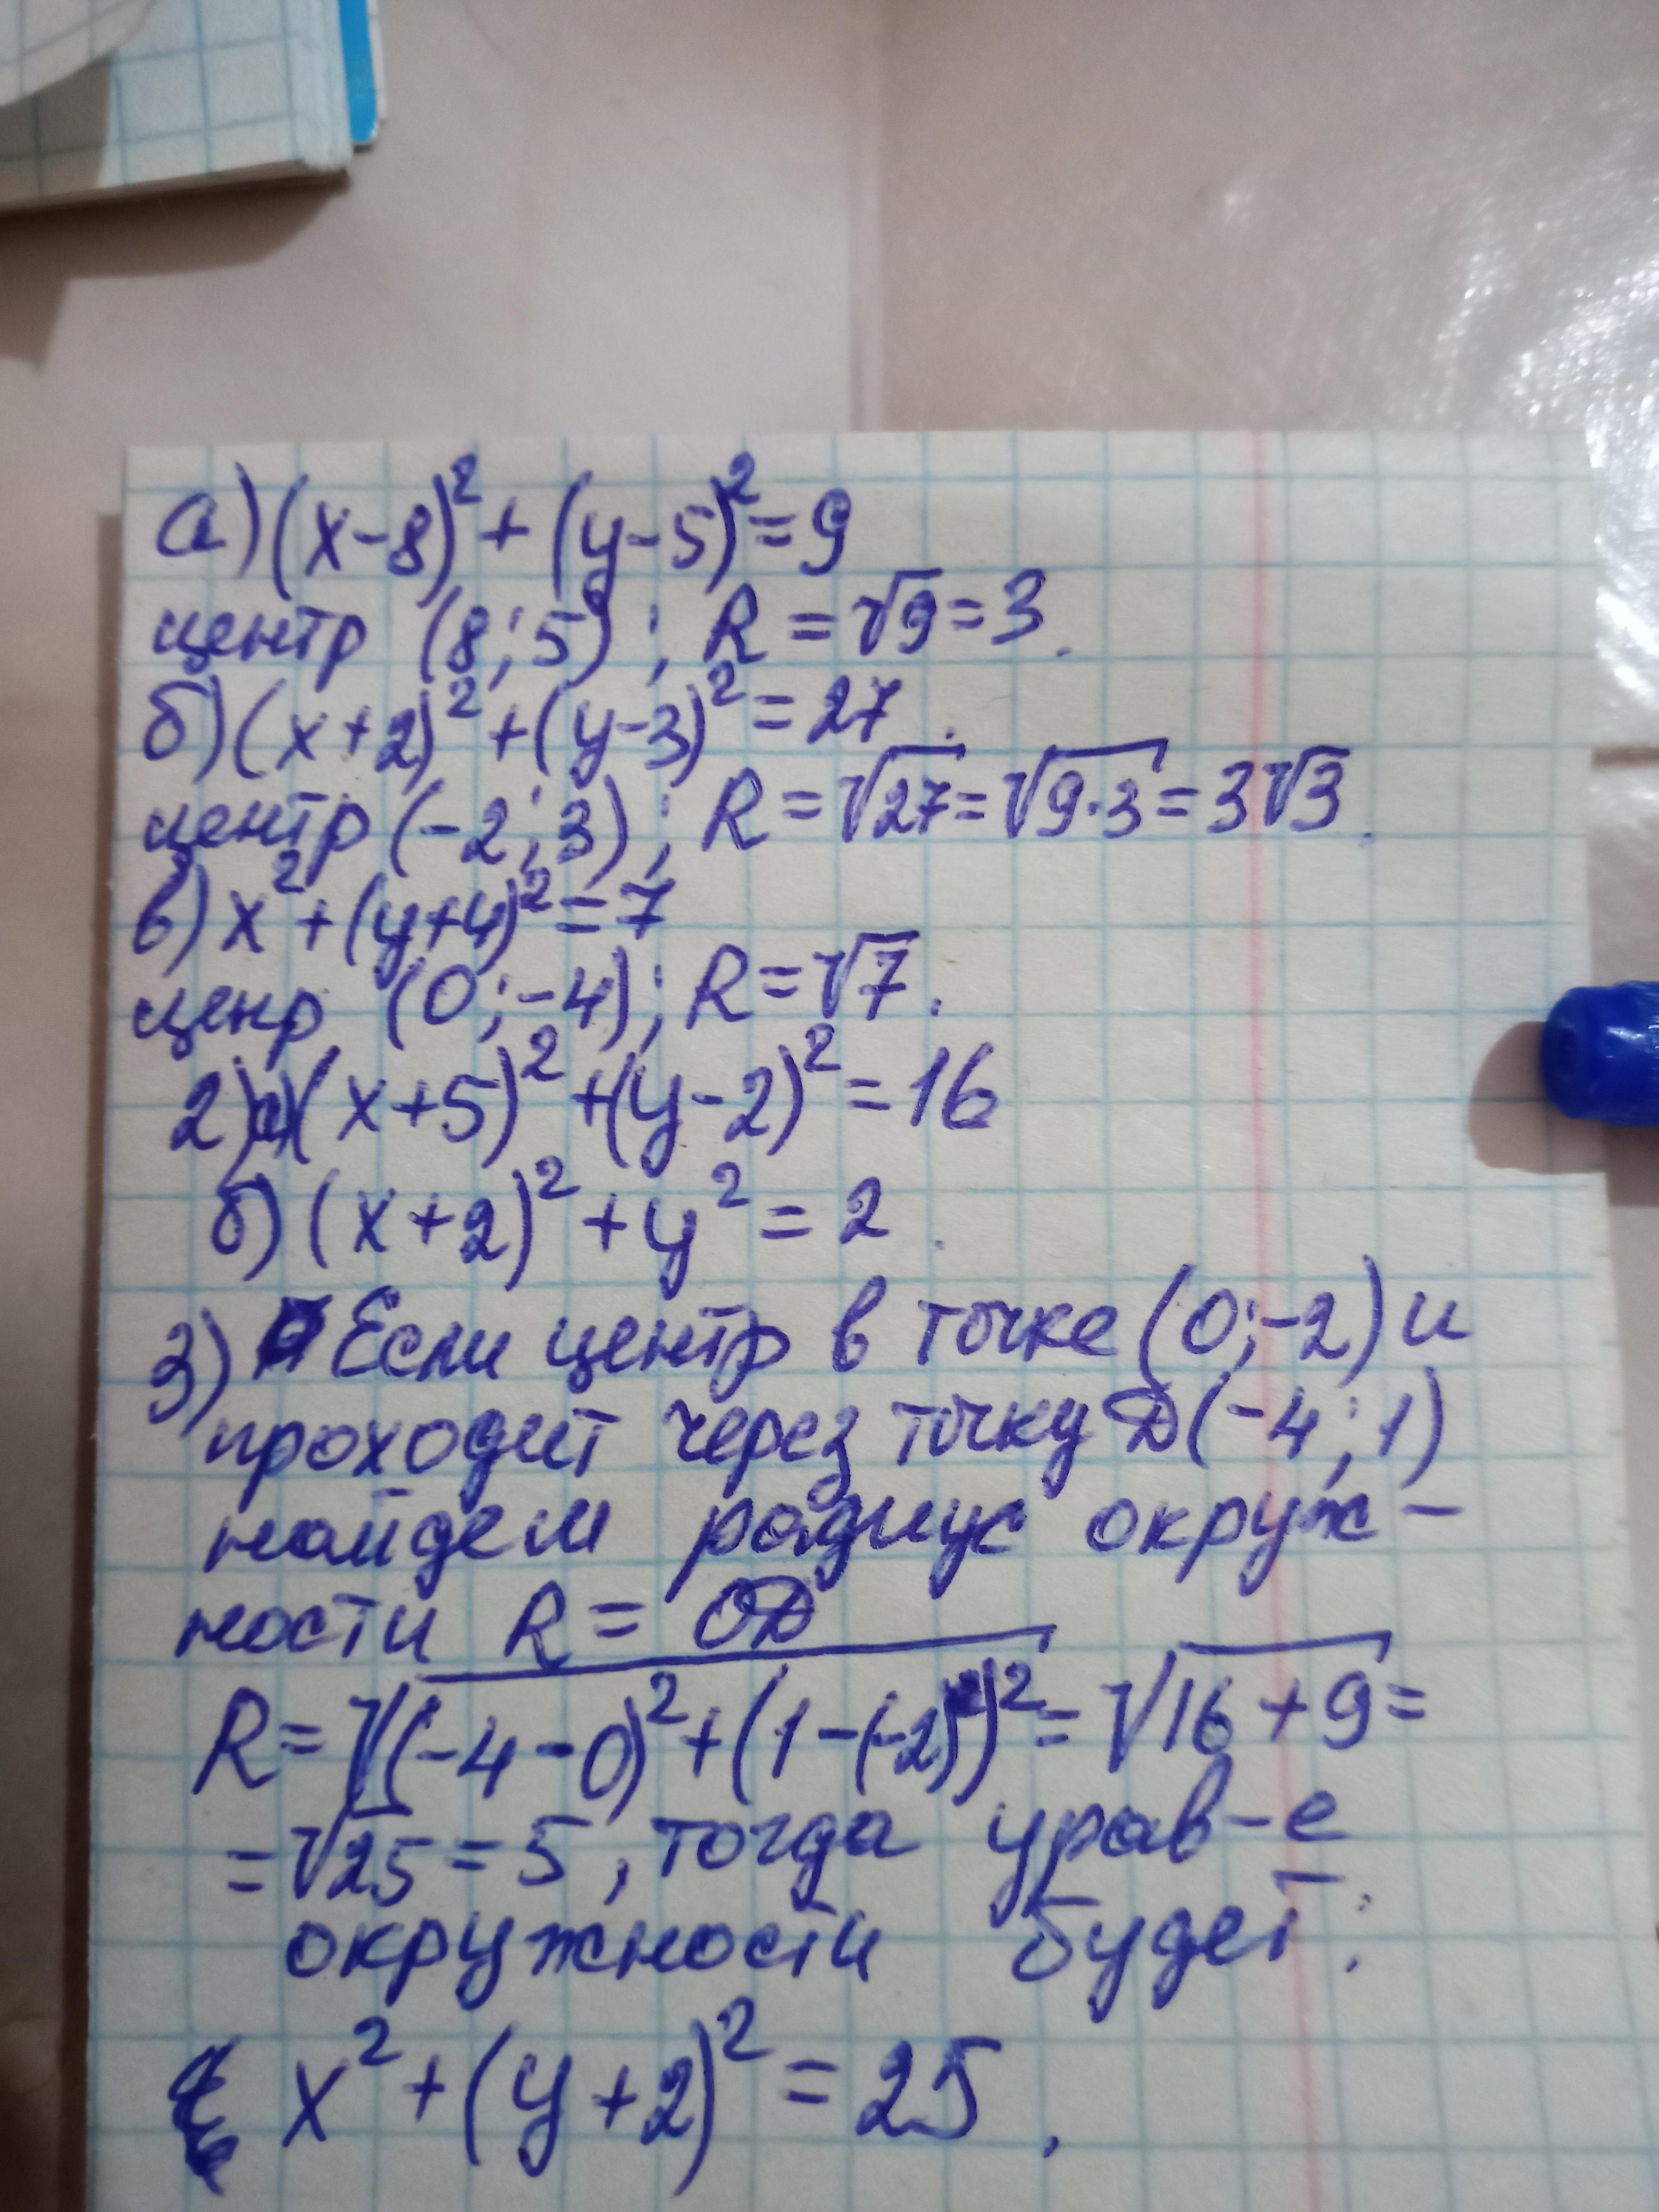 а) (x-8)² + (y-5)² = 9
центр (8;5); R = √9 = 3.
б) (x+2)² + (y-3)² = 27.
центр (-2;3); R = √27 = √9·3 = 3√3.
в) x² + (y+4)² = 7
ценр (0;-4); R = √7.
2) а) (x+5)² + (y-2)² = 16
б) (x+2)² + y² = 2.
3) Если центр в точке (0;-2) и
проходит через точку D(-4;1)
найдем радиус окруж-
ности R = OD
R = √(-4-0)² + (1-(-2))² = √16+9 =
= √25 = 5, тогда урав-е
окружности будет:
x² + (y+2)² = 25.